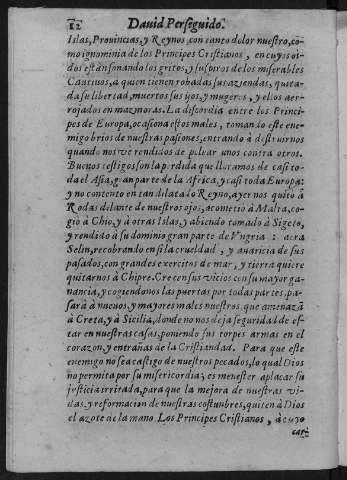 12 Dauid Perseguido.
Islas, Prouincias, y Reynos con tanto dolor nuestro, co-
mo ignominia de los Principes Cristianos, en cuyos oi-
dos estàn sonando los gritos, y suspiros de los miserables
Cautiuos, a quien tienen robadas sus aziendas, quita-
da su libertad, muertos sus ijos, y mugeres, y ellos aer-
rojados en mazmoras. La discordia entre los Princi-
pes de Europa, ocasiona estos males, tomando este ene-
migo brios de nuestras pasiones, entrando à destruirnos
quando nos vè rendidos de pelear unos contra otros.
Buenos testigos son la perdida que lloramos de casi to-
da el Asia, gran parte de la Africa, y casi toda Europa:
y no contento en tan dilatado Reyno, ayer nos quitò à
Rodas delante de nuestros ojos, acometiò à Malta, co-
giò à Chio, y à otras Islas, y abiendo tomado à Sigeto,
y rendido à su dominio gran parte de Vngria: aora
Selin, recobrando en si la crueldad, y auaricia de sus
pasados, con grandes exercitos de mar, y tierra quiere
quitarnos à Chipre. Crecen sus vicios con su mayor ga-
nancia, y cogiendonos las puertas por todas partes, pa-
sarà à nueuos, y mayores males nuestros, que amenazã
à Creta, y à Sicilia, donde no nos deja seguridad de es-
tar en nuestras casas, poniendo sus torpes armas en el
corazon, y entrañas de la Cristiandad. Para que este
enemigo no sea castigo de nuestros pecados, lo qual Dios
no permita por su misericordia; es menester aplacar su
justicia irritada, para que la mejora de nuestras vi-
das, y reformacion de nuestras costumbres, quiten à Dios
el azote de la mano. Los Principes Cristianos, à cuyo
car-